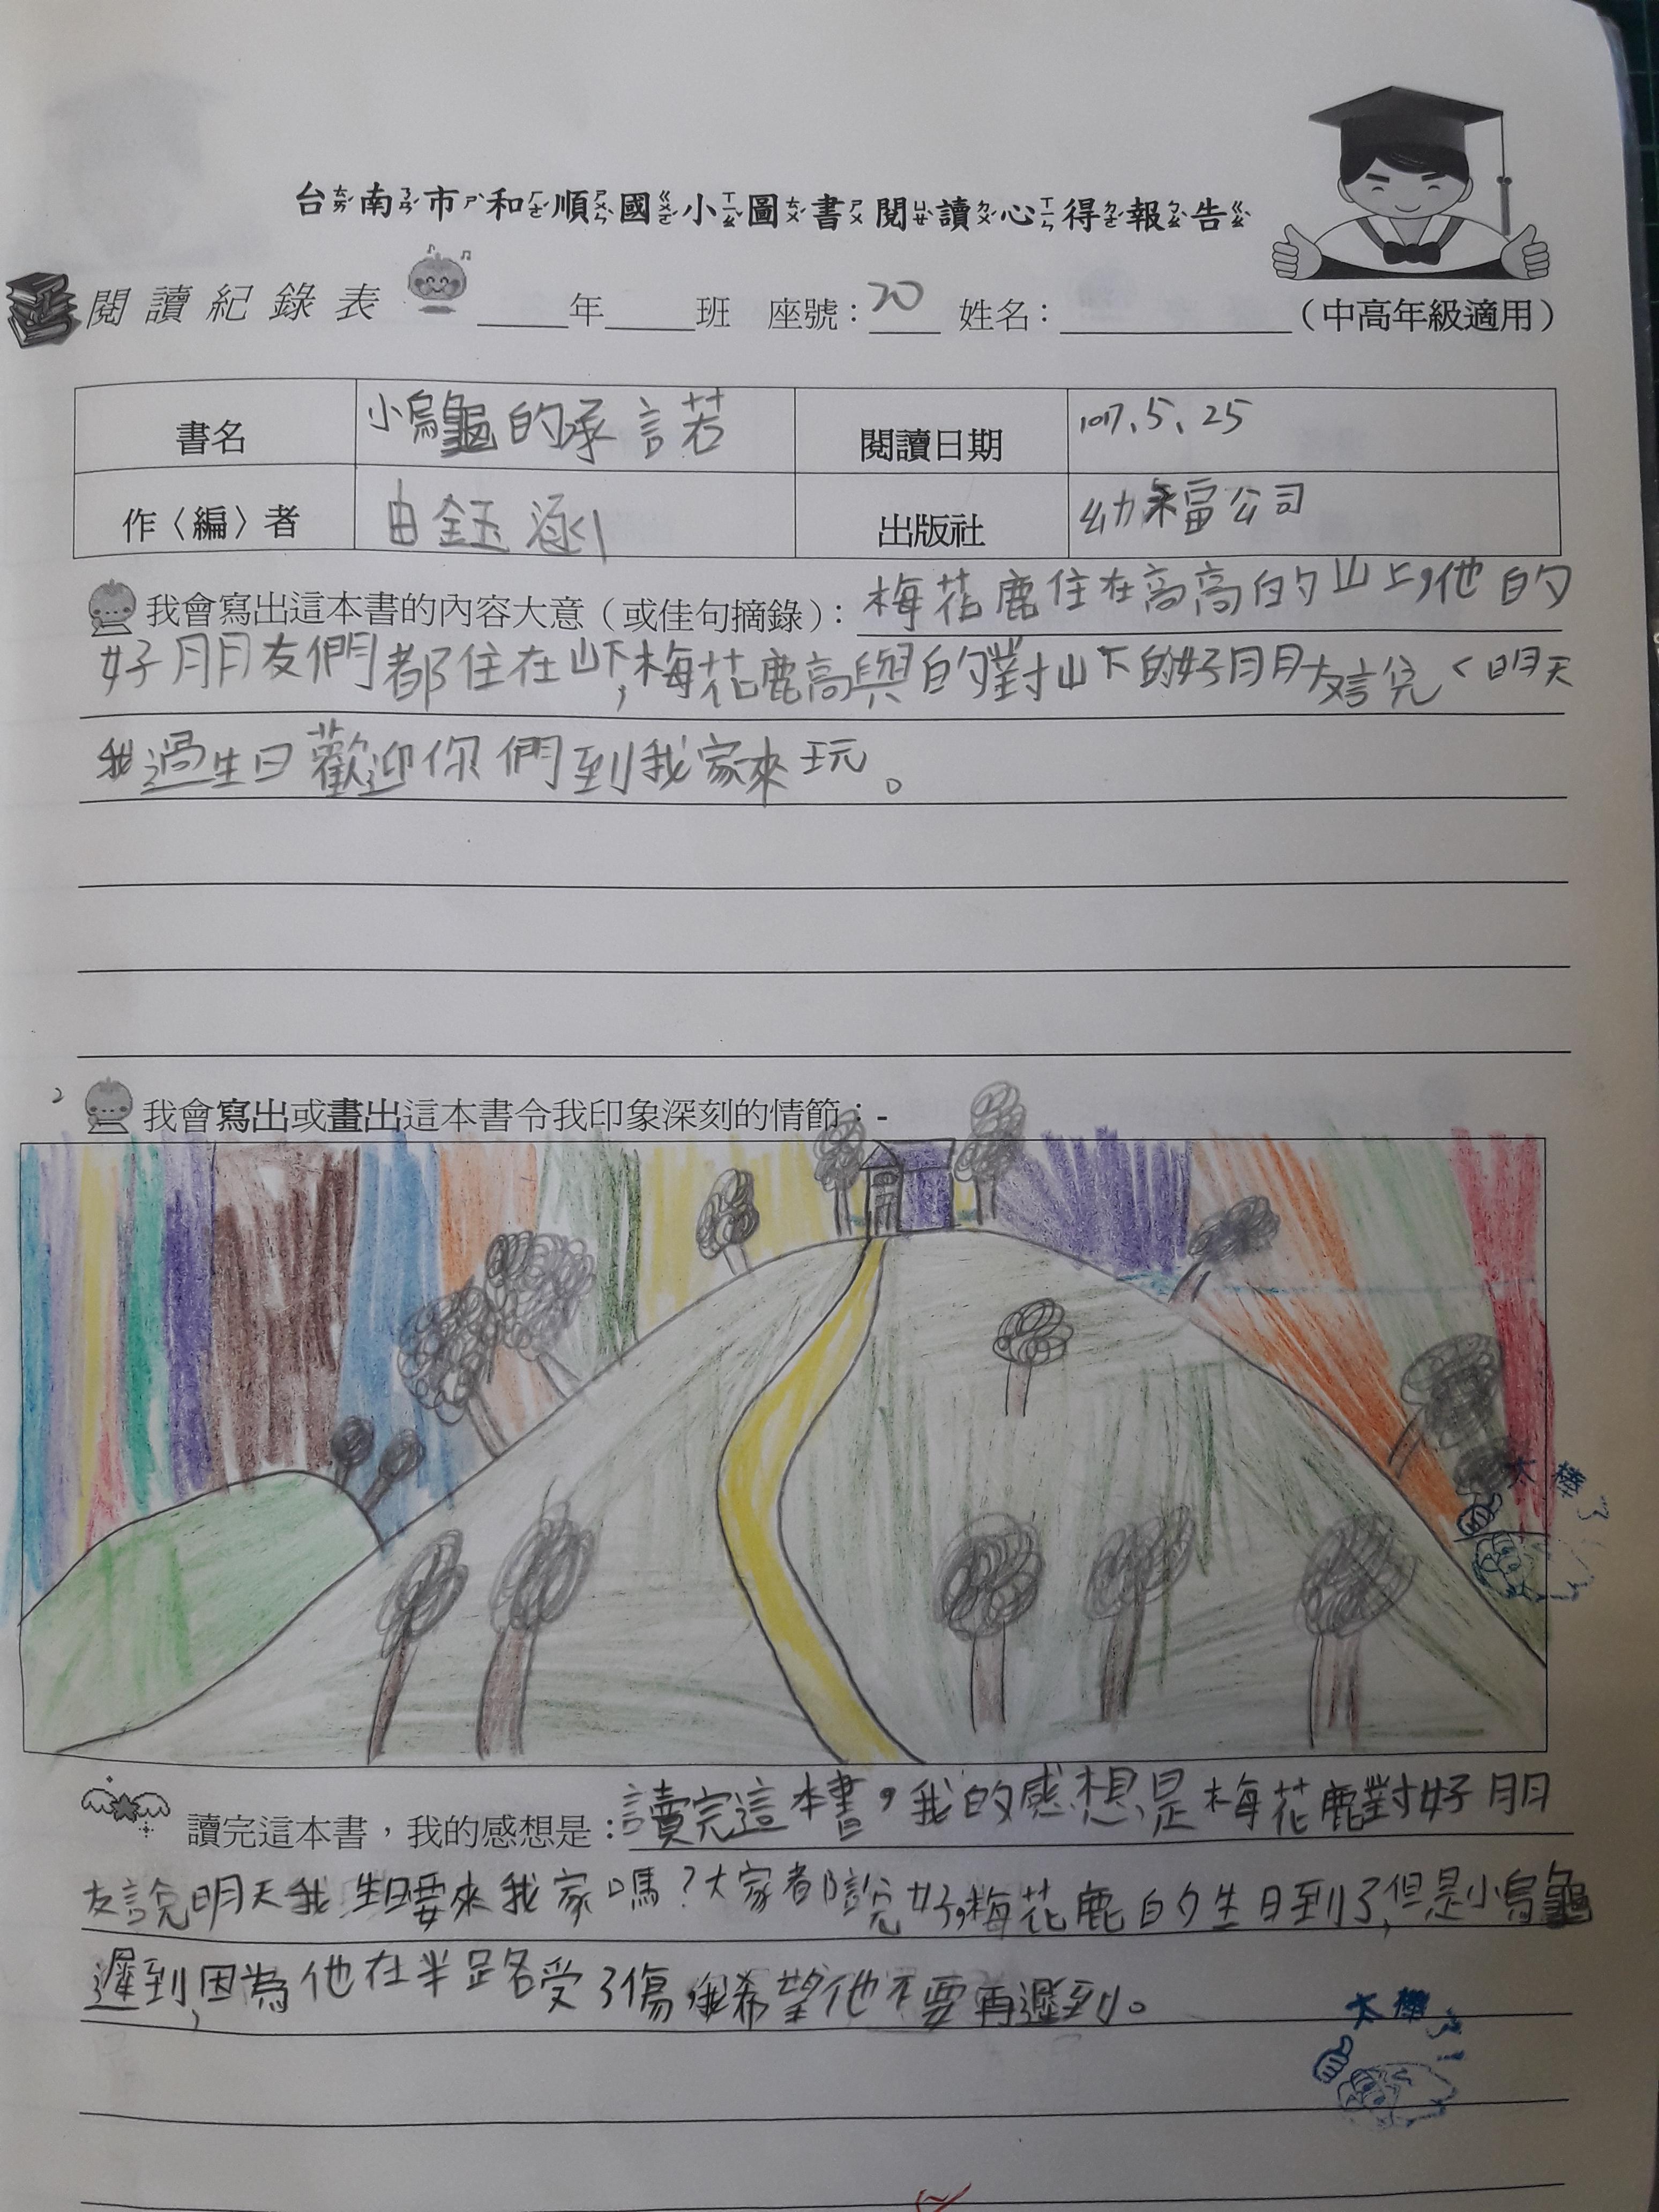 台南市和順國小圖書閱讀心得報告
閱讀紀錄表 ____年____班 座號：20 姓名：________（中高年級適用）
書名 小烏龜的承諾 閱讀日期 107、5、25
作〈編〉者 由鈺涵 出版社 幼福公司
我會寫出這本書的內容大意（或佳句摘錄）：梅花鹿住在高高的山上，他的
好朋友們都住在山下，梅花鹿高興的對山下的好朋友說：明天
我過生日歡迎你們到我家來玩。
我會寫出或畫出這本書令我印象深刻的情節：-
太棒了
讀完這本書，我的感想是：讀完這本書，我的感想是梅花鹿對好朋
友說明天我生日要來我家嗎？大家都說好，梅花鹿的生日到了，但是小烏龜
遲到，因為他在半路受了傷，我希望他不要再遲到。
太棒了